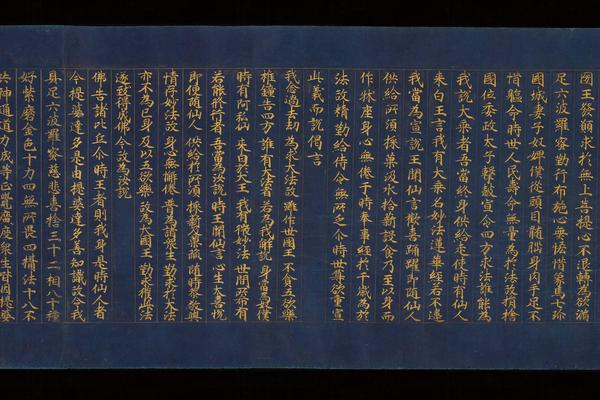 國王發願求於無上菩提心不退轉為欲滿
足六波羅蜜勤行布施心無悋惜象馬七珍
國城妻子奴婢僕從頭目髓腦身肉手足不
惜軀命時世人民壽命無量為於法故捐捨
國位委政太子擊鼓宣令四方求法誰能為
我說大乘者吾當終身供給走使時有仙人
來白王言我有大乘名妙法蓮華經若不違
我當為宣說王聞仙言歡喜踊躍即隨仙人
供給所須採菓汲水拾薪設食乃至以身而
作床座身心無倦于時奉事經於千歲為於
法故精勤給侍令無所乏尒時世尊欲重宣
此義而說偈言
我念過去劫 為求大法故 雖作世國王 不貪五欲樂
椎鐘告四方 誰有大法者 若為我解說 身當為奴僕
時有阿私仙 來白於大王 我有微妙法 世間所希有
若能修行者 吾當為汝說 時王聞仙言 心生大喜悅
即便隨仙人 供給於所須 採薪及菓蓏 隨時恭敬與
情存妙法故 身心無懈倦 普為諸眾生 勤求於大法
亦不為己身 及以五欲樂 故為大國王 勤求獲此法
遂致得成佛 今故為汝說
佛告諸比丘尒時王者則我身是時仙人者
今提婆達多是由提婆達多善知識故令我
具足六波羅蜜慈悲喜捨三十二相八十種
好紫磨金色十力四無所畏四攝法十八不
共神通道力成等正覺廣度眾生皆因提婆